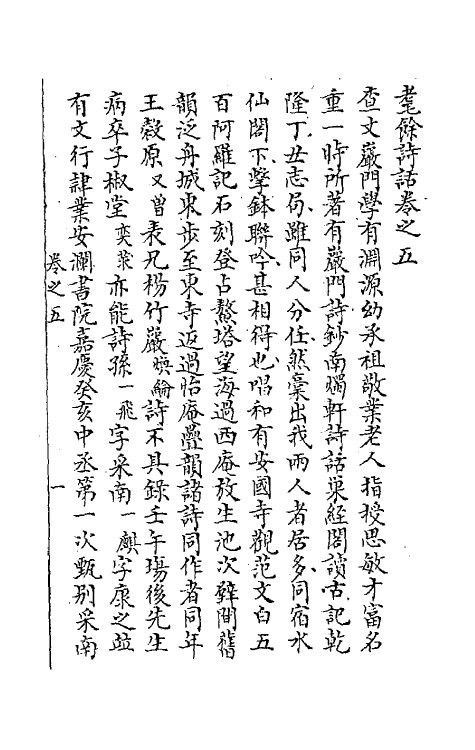 耄餘詩話卷之五
查文巖門學有淵源幼承祖敬業老人指授思敏才富名
重一時所著有巖門詩鈔南燭軒詩話巢經閣讀古記乾
隆丁丑志局雖同人分任然藁出我兩人者居多同宿水
仙閣下擊鉢聯吟甚相得也唱和有安國寺觀范文白五
百阿羅記石刻登占鰲塔望海過西庵放生池次辥間舊
韻泛舟城東步至東寺返過怡庵疊韻諸詩同作者同年
王穀原又曾表兄楊竹巖煥綸詩不具錄壬午瑒後先生
病卒子椒堂奕棻亦能詩孫一飛字采南一麒字康之竝
有文行肄業安瀾書院嘉慶癸亥中丞第一次甄别采南
卷之五
一